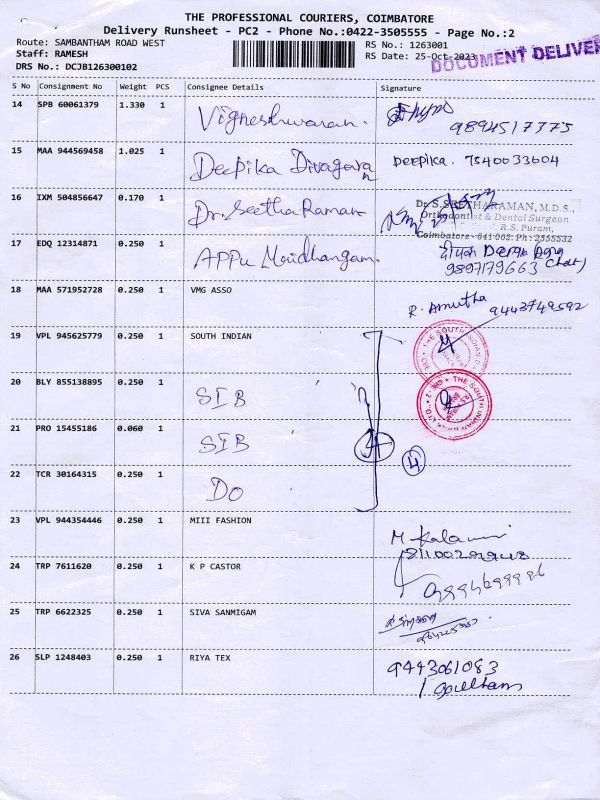 THE PROFESSIONAL COURIERS, COIMBATORE
Delivery Runsheet - PC2 - Phone No.:0422-3505555 - Page No.:2
Route: SAMBANTHAM ROAD WEST
Staff: RAMESH
DRS No.: DCJB126300102
RS No.: 1263001
RS Date: 25-Oct-2023
DOCUMENT DELIVER
S No Consignment No Weight PCS Consignee Details Signature
14 SPB 60061379 1.330 1 Vigneshwaran.
9894517375
15 MAA 944569458 1.025 1 Deepika Divagaran Deepika. 7540033604
16 IXM 504856647 0.170 1 Dr. Seetha Raman
Dr. S. SEETHARAMAN, M.D.S.,
Orthodontist & Dental Surgeon
R.S. Puram,
Coimbatore - 641 002. Ph : 2555532
17 EDQ 12314871 0.250 1 APPU
9897179663
18 MAA 571952728 0.250 1 VMG ASSO R. Amutha 9443749592
19 VPL 945625779 0.250 1 SOUTH INDIAN
THE SOUTH INDIAN
20 BLY 855138895 0.250 1 SIB
THE SOUTH INDIAN BANK LTD.
21 PRO 15455186 0.060 1 SIB
4
22 TCR 30164315 0.250 1 DO
23 VPL 944354446 0.250 1 MIII FASHION
24 TRP 7611620 0.250 1 K P CASTOR
25 TRP 6622325 0.250 1 SIVA SANMIGAM
26 SLP 1248403 0.250 1 RIYA TEX 9443061083